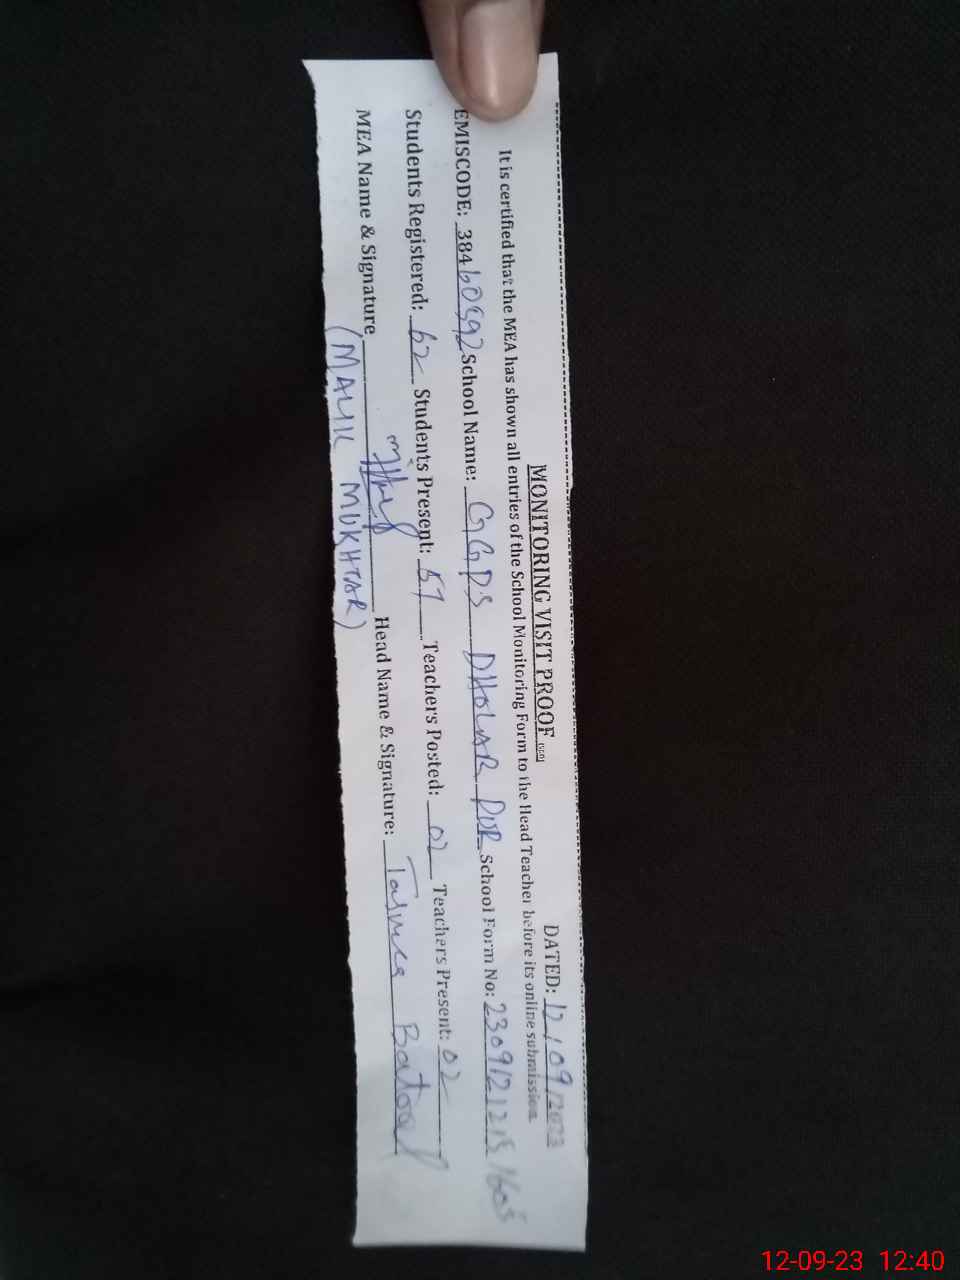 MONITORING VISIT PROOF
DATED: 12/09/2023
It is certified that the MEA has shown all entries of the School Monitoring Form to the Head Teacher before its online submission.
EMISCODE: 38460592 School Name: GGPS DHOLAR PUR School Form No: 2309121215 1605
Students Registered: 62 Students Present: 57 Teachers Posted: 02 Teachers Present: 02
MEA Name & Signature Head Name & Signature: Batool
(MALIK MUKHTAR)
12-09-23 12:40